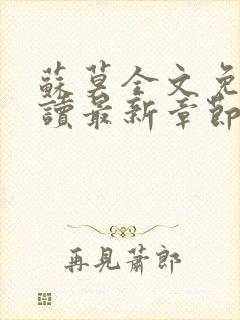 蘇莫全文免
讀最新章節
再見蕭郎